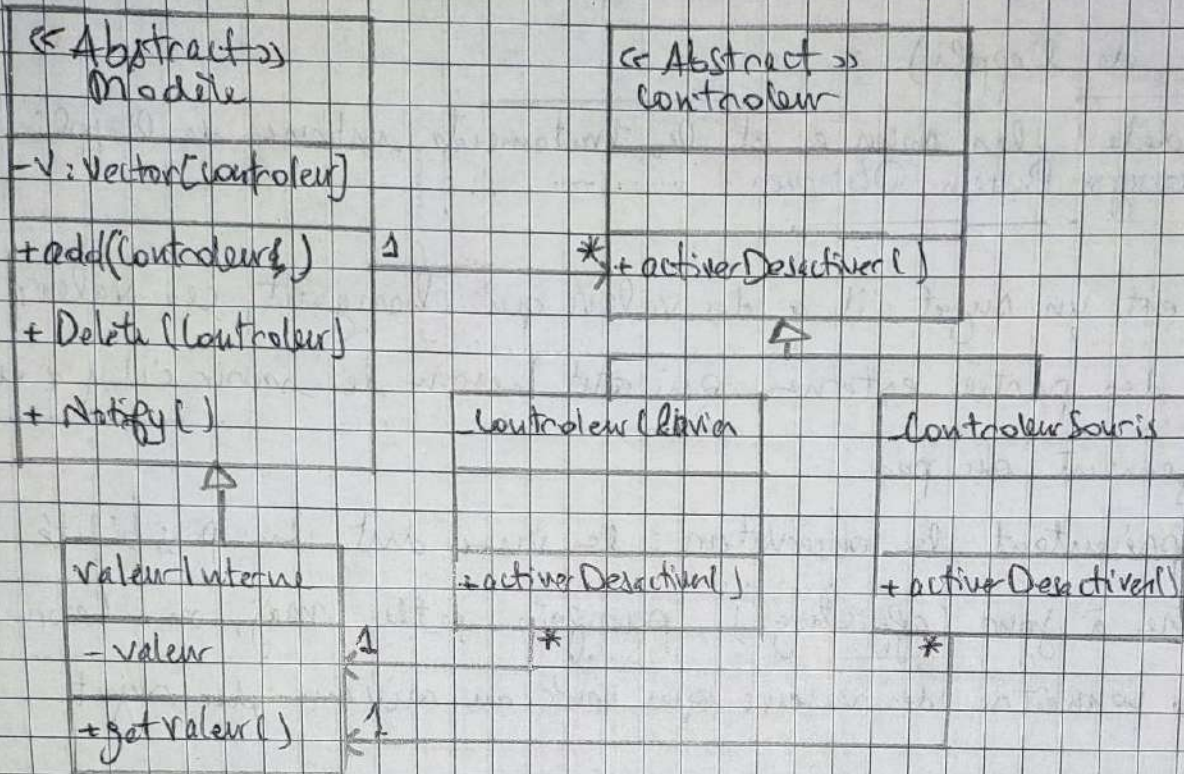 << Abstract >>
Modèle
- V : Vector[Controleur]
+ add(Controleur)
+ Delete (Controleur)
+ Notify()
1
*
<< Abstract >>
Controleur
+ activerDesactiver()
ControleurClavier
+ activerDesactiver()
*
ControleurSouris
+ activerDesactiver()
*
Valeur Interne
- valeur
+ getValeur()
1
1